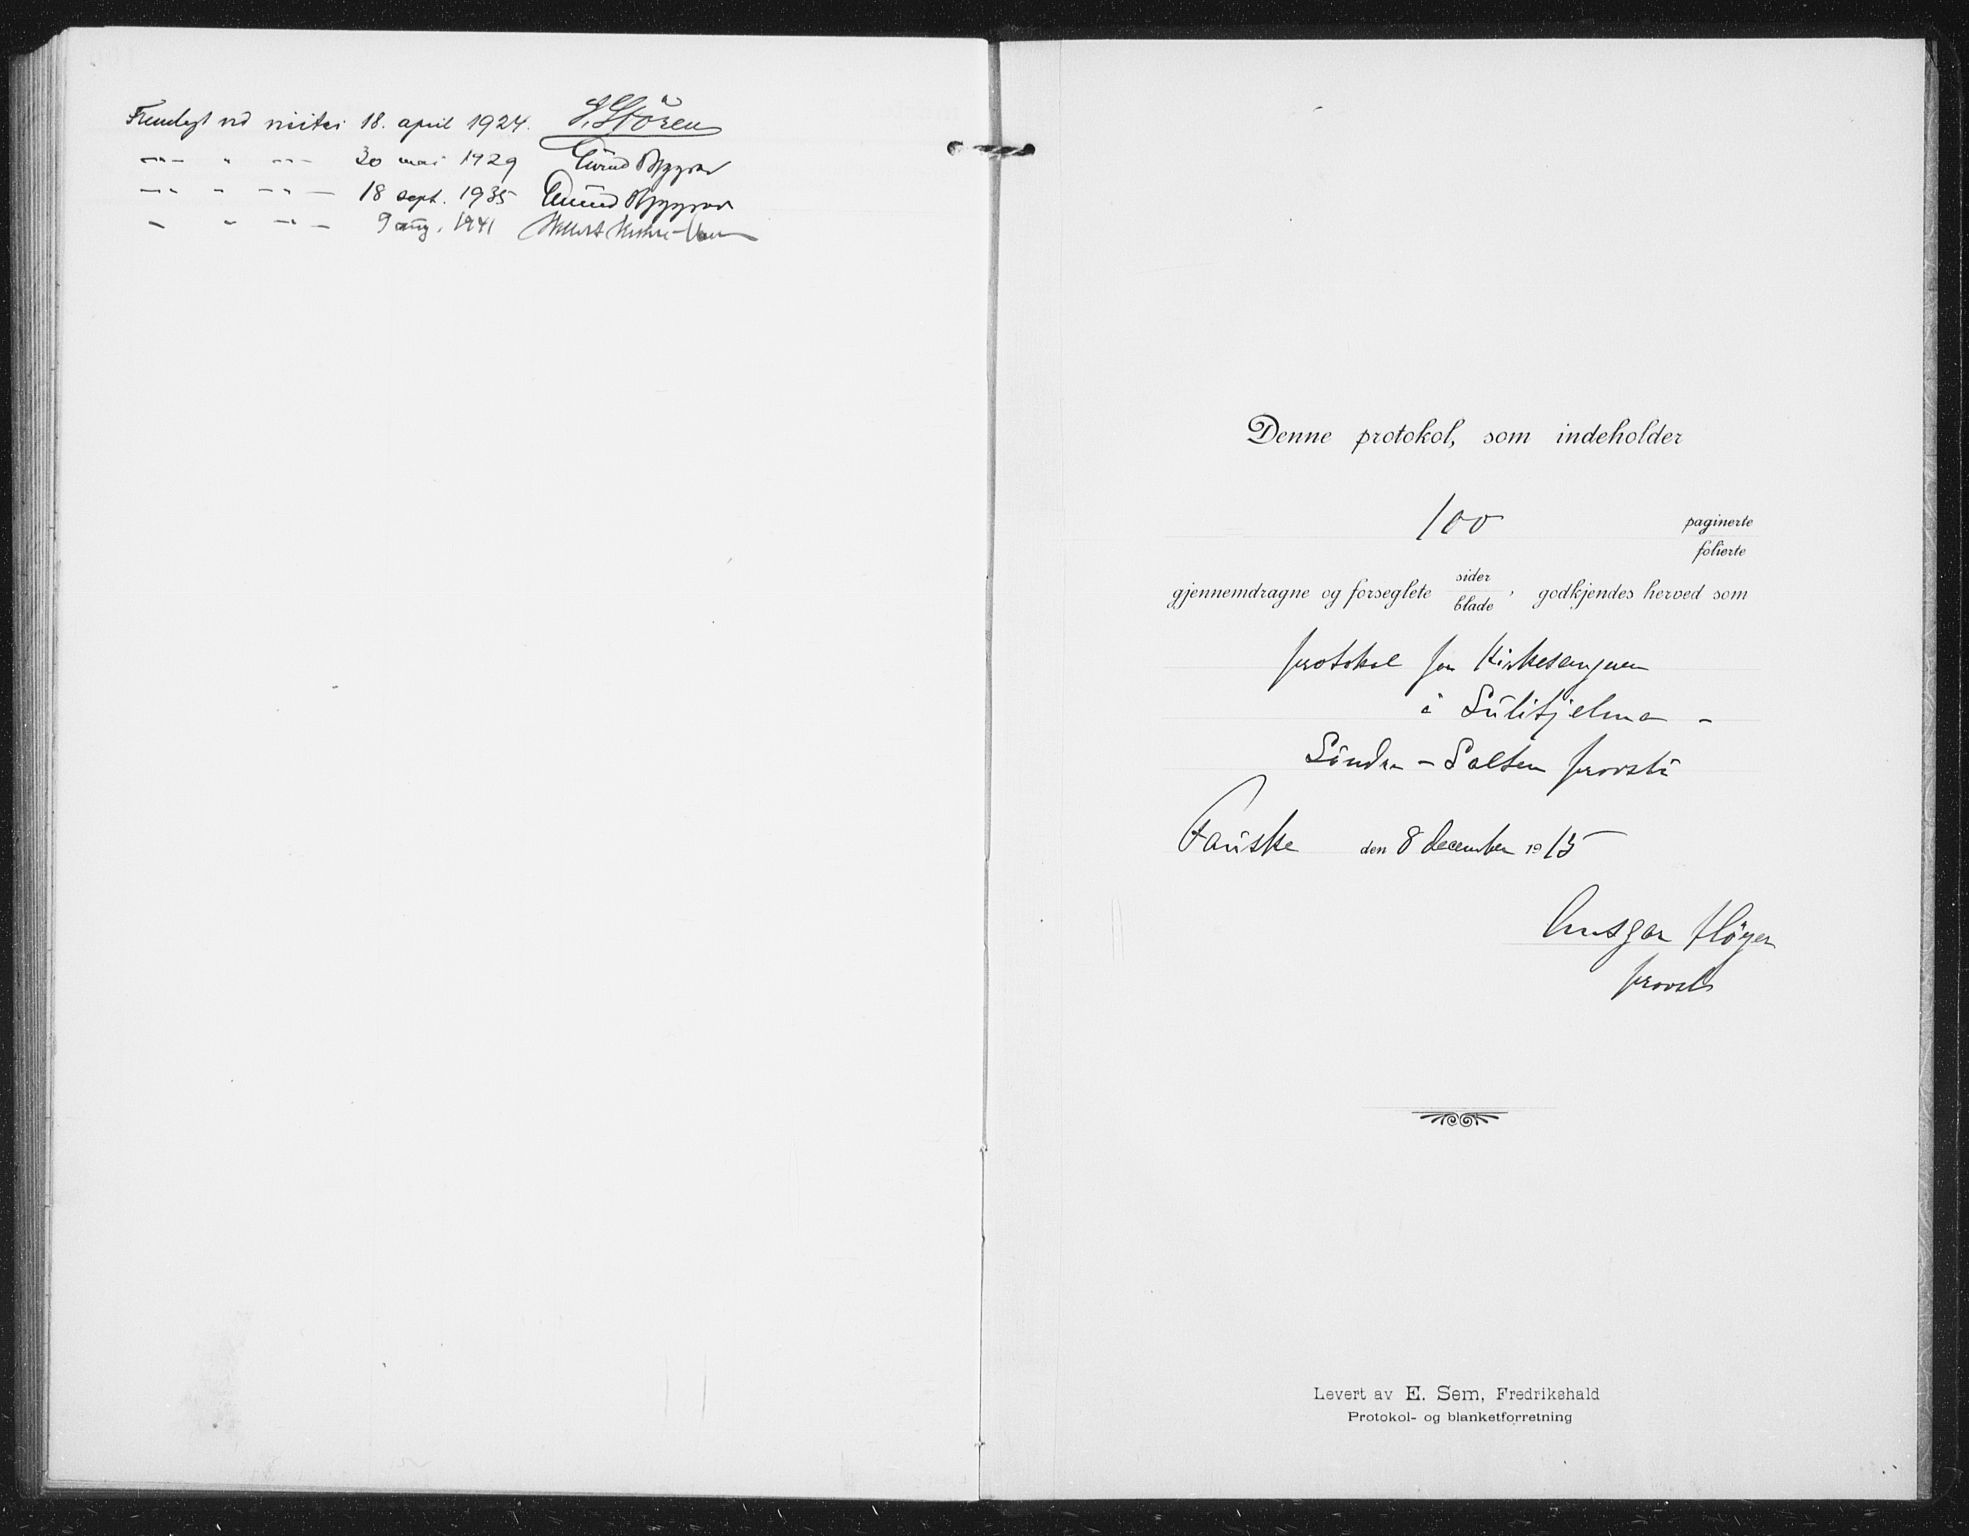 Fremlagt ved visitas 18. april 1924. S. Støren
—"— " —"— 30 mai 1929 Eivind Berggrav
—"— " —"— 18 sept. 1935 Eivind Berggrav
" " —"— 9 aug. 1941
Denne protokol, som indeholder
100 paginerte
folierte
sider
gjennemdragne og forseglete , godkjendes herved som
blade
protokol for Kirkesangeren
i Sulitjelma –
Søndre – Salten provsti
Fauske den 8 december 1915
Ansgar Høyer
provst
Levert av E. Sem, Fredrikshald
Protokol- og blanketforretning